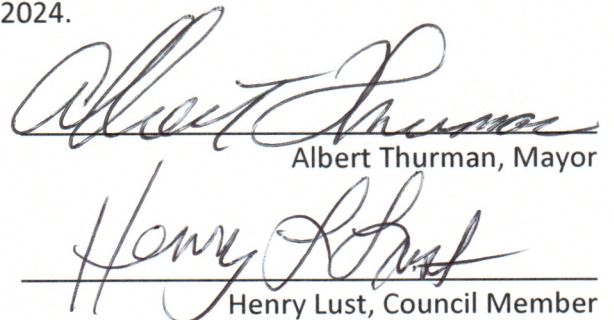 2024.
Albert Thurman
Albert Thurman, Mayor
Henry L Lust
Henry Lust, Council Member